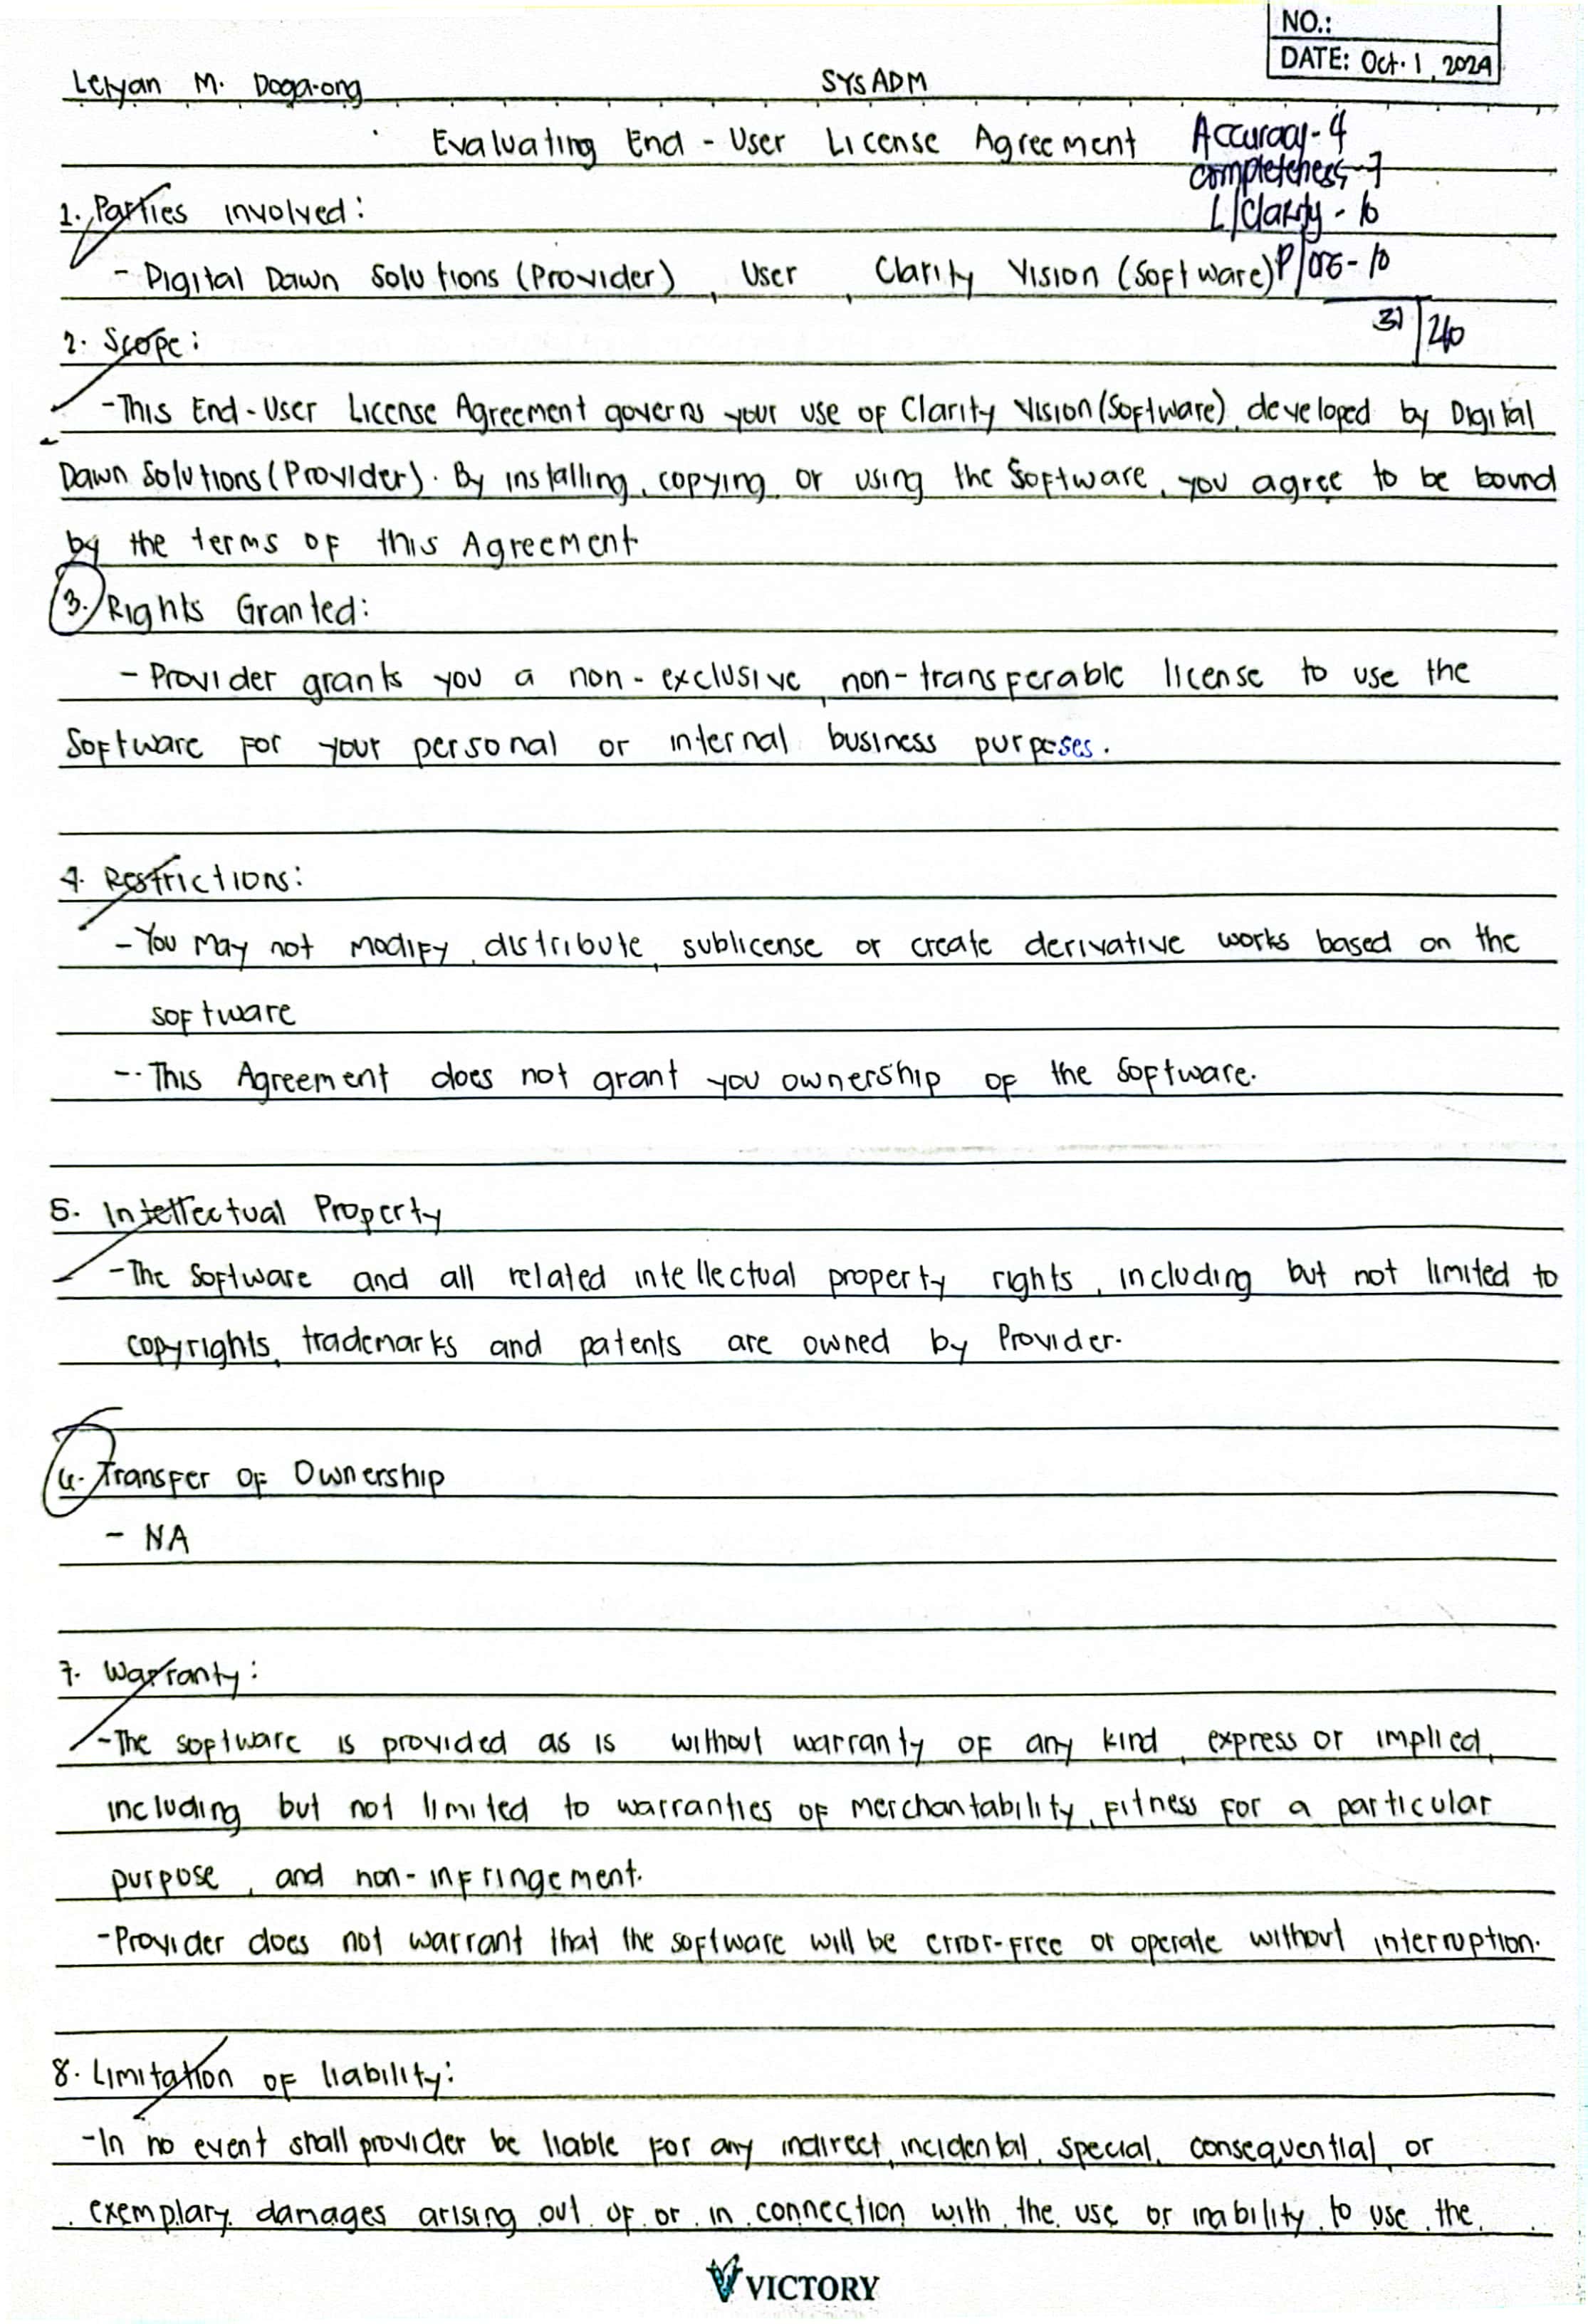 NO.:
DATE: Oct. 1, 2024
Leryan M. Doga-ong SYSADM
Evaluating End-User License Agreement
Accuracy - 4
completeness - 7
L/Clarity - 10
P/ORG - 10
31/40
1. Parties involved:
- Digital Dawn Solutions (Provider), User, Clarity Vision (Software)
2. Scope:
- This End-User License Agreement governs your use of Clarity Vision (Software), developed by Digital
Dawn Solutions (Provider). By installing, copying, or using the Software, you agree to be bound
by the terms of this Agreement
3. Rights Granted:
- Provider grants you a non-exclusive, non-transferable license to use the
Software for your personal or internal business purposes.
4. Restrictions:
- You may not modify, distribute, sublicense or create derivative works based on the
software
- This Agreement does not grant you ownership of the Software.
5. Intellectual Property
- The Software and all related intellectual property rights, including but not limited to
copyrights, trademarks and patents are owned by Provider.
6. Transfer of Ownership
- NA
7. Warranty:
- The software is provided as is without warranty of any kind, express or implied,
including but not limited to warranties of merchantability, fitness for a particular
purpose, and non-infringement.
- Provider does not warrant that the software will be error-free or operate without interruption.
8. Limitation of liability:
- In no event shall provider be liable for any indirect, incidental, special, consequential, or
exemplary damages arising out of or in connection with the use or inability to use the
VICTORY